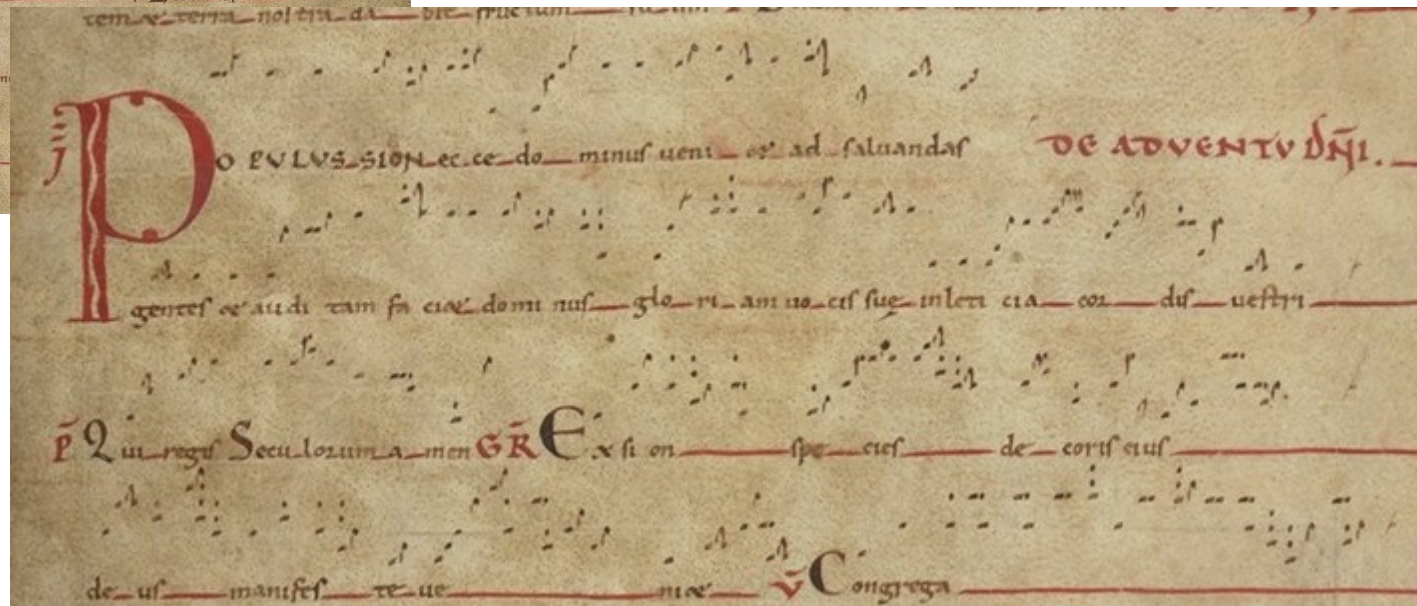 tem & terra nostra da bit fructum suum
PO PVLVS SION ec ce do minus veni & ad salvandas DE ADVENTV DN̄I.
gentes & audi tam fa ci& domi nus glo ri am vo cis suę inleti cia cor dis vestri
P̄ Qui regis Seculorum amen GR̄ Ex si on spe cies de coris eius
de us manifes te ve ni& V̄ Congrega